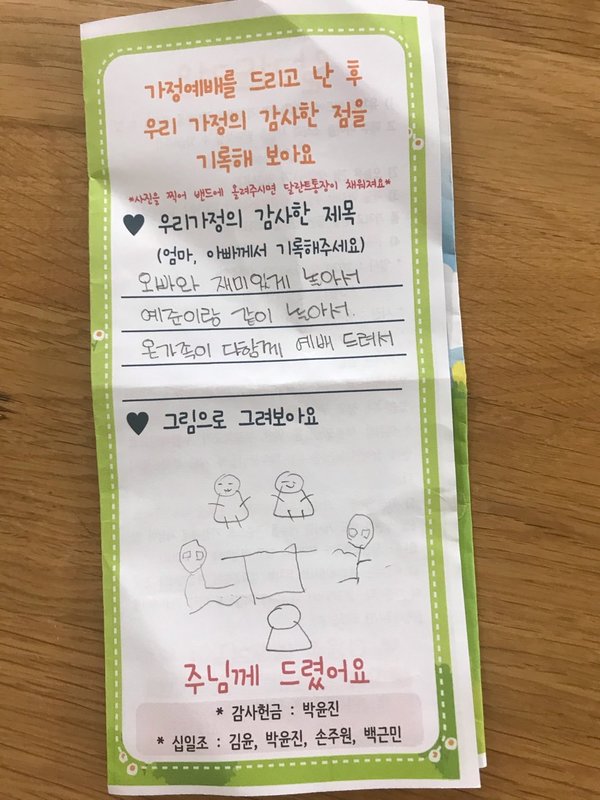 가정예배를 드리고 난 후
우리 가정의 감사한 점을
기록해 보아요
*사진을 찍어 밴드에 올려주시면 달란트통장이 채워져요*
♥ 우리가정의 감사한 제목
(엄마, 아빠께서 기록해주세요)
오빠와 재미있게 놀아서
예준이랑 같이 놀아서.
온가족이 다함께 예배 드려서
♥ 그림으로 그려보아요
주님께 드렸어요
* 감사헌금 : 박윤진
* 십일조 : 김윤, 박윤진, 손주원, 백근민